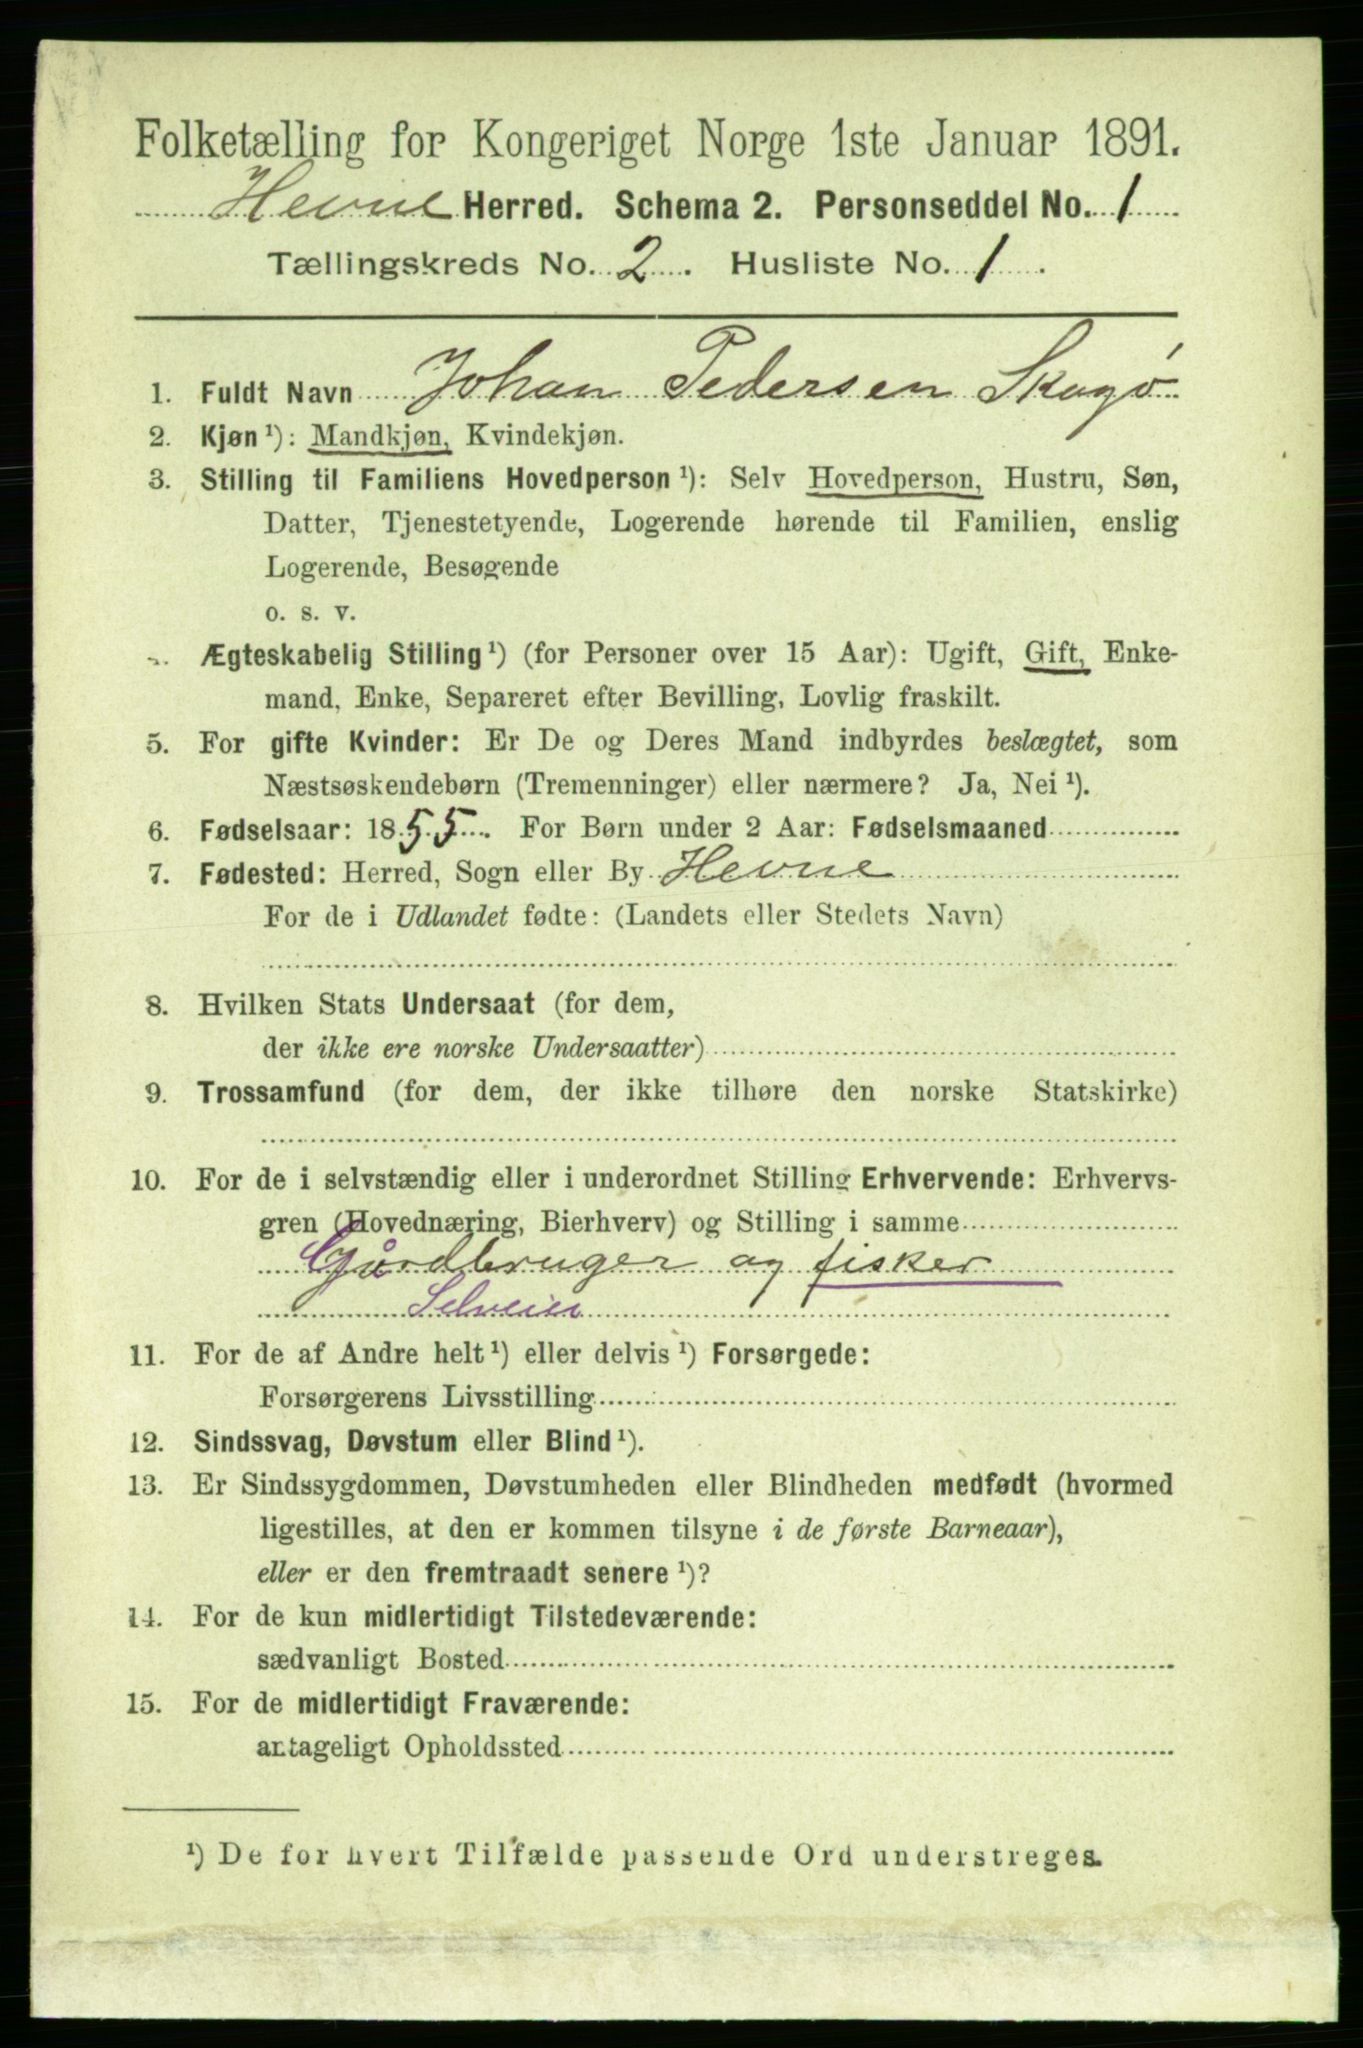 Folketælling for Kongeriget Norge 1ste Januar 1891.
Hevne Herred. Schema 2. Personseddel No. 1
Tællingskreds No. 2. Husliste No. 1.
1. Fuldt Navn Johan Pedersen Skagø
2. Kjøn ¹): Mandkjøn, Kvindekjøn.
3. Stilling til Familiens Hovedperson ¹): Selv Hovedperson, Hustru, Søn,
Datter, Tjenestetyende, Logerende hørende til Familien, enslig
Logerende, Besøgende
o. s. v.
Ægteskabelig Stilling ¹) (for Personer over 15 Aar): Ugift, Gift, Enke-
mand, Enke, Separeret efter Bevilling, Lovlig fraskilt.
5. For gifte Kvinder: Er De og Deres Mand indbyrdes beslægtet, som
Næstsøskendebørn (Tremenninger) eller nærmere? Ja, Nei ¹).
6. Fødselsaar: 1855. For Børn under 2 Aar: Fødselsmaaned
7. Fødested: Herred, Sogn eller By Hevne
For de i Udlandet fødte: (Landets eller Stedets Navn)
8. Hvilken Stats Undersaat (for dem,
der ikke ere norske Undersaatter)
9. Trossamfund (for dem, der ikke tilhøre den norske Statskirke)
10. For de i selvstændig eller i underordnet Stilling Erhvervende: Erhvervs-
gren (Hovednæring, Bierhverv) og Stilling i samme
Gårdbruger og fisker
Selveier
11. For de af Andre helt ¹) eller delvis ¹) Forsørgede:
Forsørgerens Livsstilling
12. Sindssvag, Døvstum eller Blind ¹).
13. Er Sindssygdommen, Døvstumheden eller Blindheden medfødt (hvormed
ligestilles, at den er kommen tilsyne i de første Barneaar),
eller er den fremtraadt senere ¹)?
14. For de kun midlertidigt Tilstedeværende:
sædvanligt Bosted
15. For de midlertidigt Fraværende:
antageligt Opholdssted
¹) De for hvert Tilfælde passende Ord understreges.